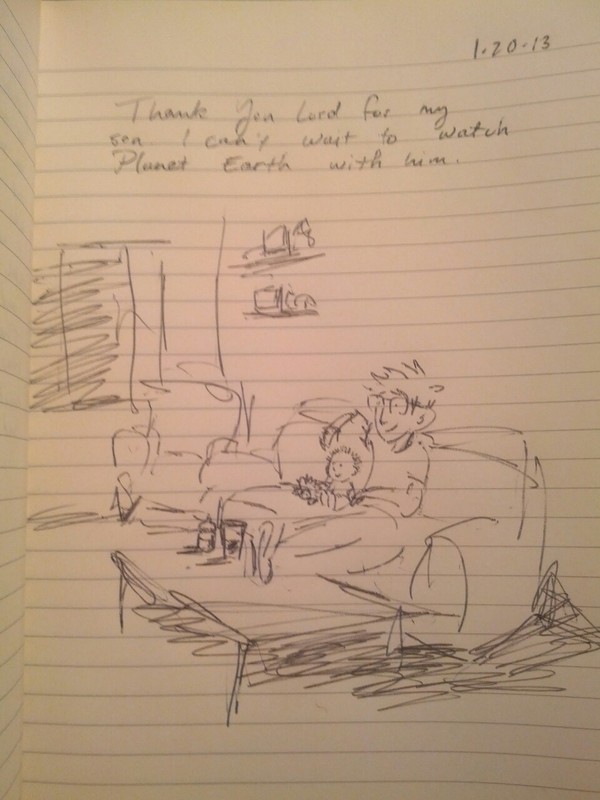 1.20.13
Thank You Lord for my
son I can't wait to watch
Planet Earth with him.